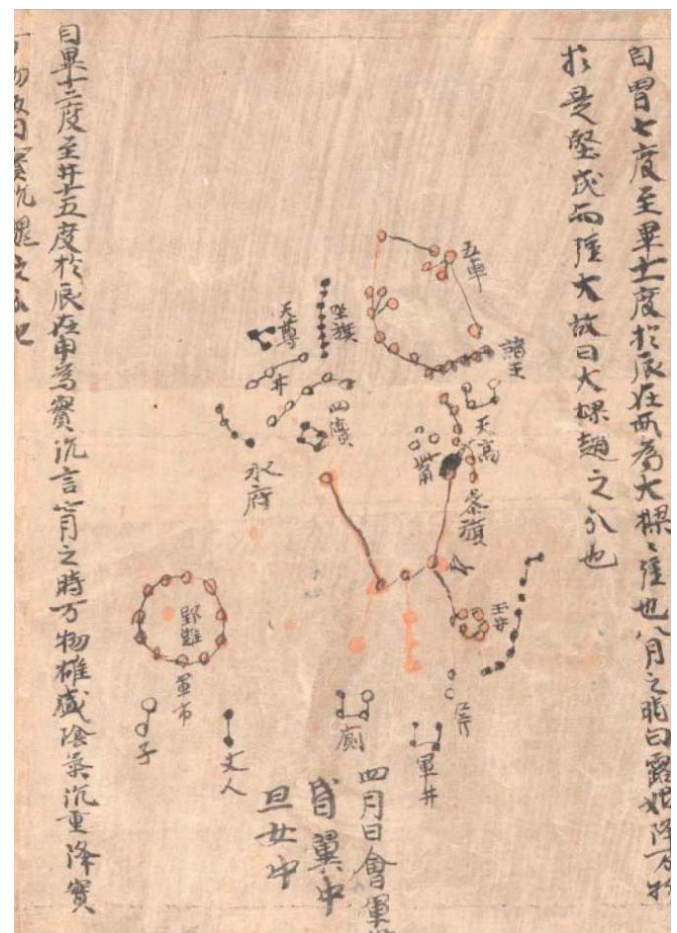 自胃七度至畢十一度於辰在酉為大樑〻強也八月之時白露始降万物
於是堅成而強大故曰大樑趙之分也
五車
諸王
坐旗
天尊
井
四瀆
天高
觜
水府
參旗
玉井
野雞
軍市
屏
子
丈人
廁
軍井
四月日會
昏翼中
旦女中
自畢十二度至井十五度於辰在申為實沉言七月之時万物雄盛陰氣沉重降實
万物故曰實沉魏之分也